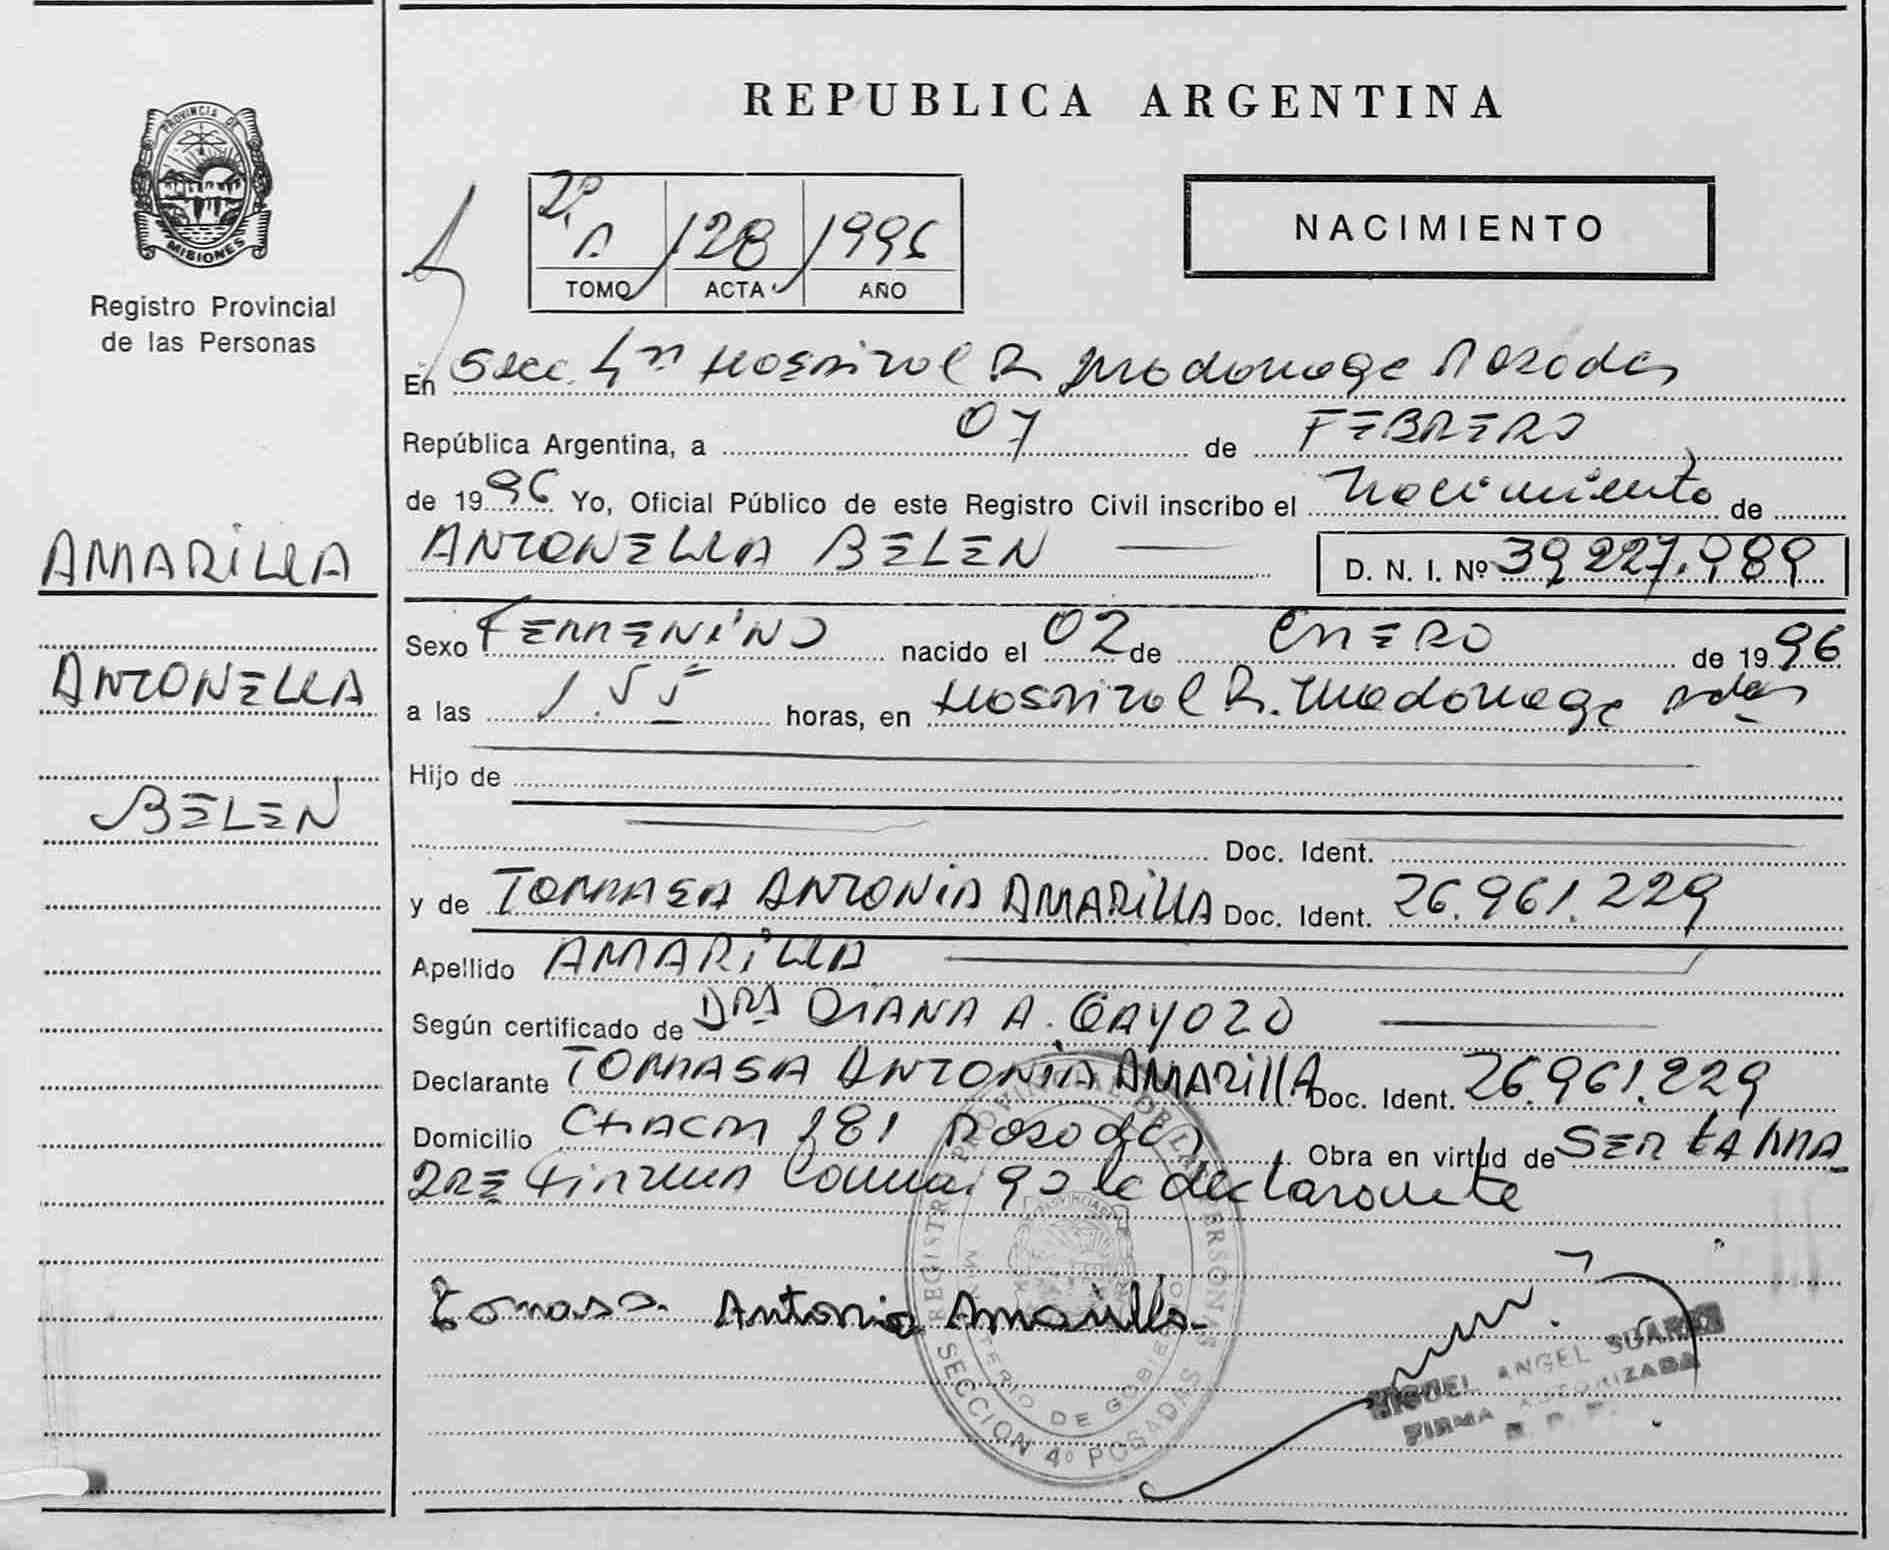 PROVINCIA DE
MISIONES
Registro Provincial
de las Personas
AMARILLA
ANTONELLA
BELEN
REPUBLICA ARGENTINA
NACIMIENTO
128 1996
TOMO ACTA AÑO
En Secc. 4ta Hospital R. Madariaga Posadas
República Argentina, a 07 de FEBRERO
de 1996 Yo, Oficial Público de este Registro Civil inscribo el Nacimiento de
ANTONELLA BELEN D. N. I. Nº 39.227.989
Sexo FEMENINO nacido el 02 de ENERO de 1996
a las 1.55 horas, en Hospital R. Madariaga Pdas
Hijo de
Doc. Ident.
y de TOMASA ANTONIA AMARILLA Doc. Ident. 26.961.229
Apellido AMARILLA
Según certificado de DRA DIANA A. GAYOZO
Declarante TOMASA ANTONIA AMARILLA Doc. Ident. 26.961.229
Domicilio CHACM 181 Posadas Obra en virtud de SER LA MA
DRE Firma la declarante
Tomasa Antonia Amarilla
REGISTRO PROVINCIAL DE LAS PERSONAS
MINISTERIO DE GOBIERNO
SECCION 4º POSADAS
MIGUEL ANGEL SUAREZ
FIRMA AUTORIZADA
R. P. P.